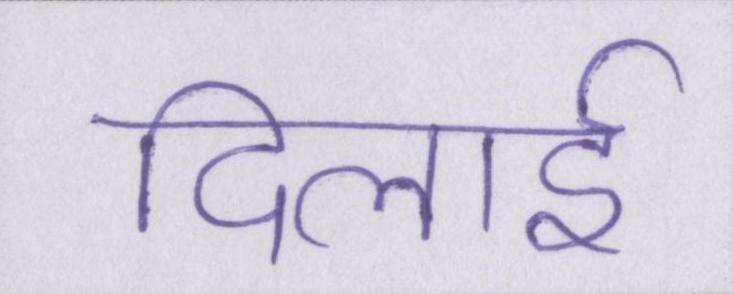 दिलाई